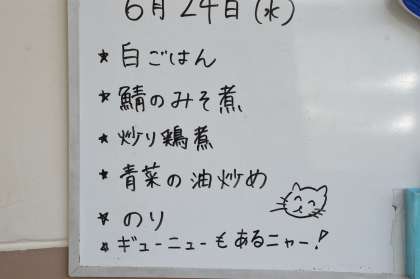 6月24日(水)
★ 白ごはん
★ 鯖のみそ煮
★ 炒り鶏煮
★ 青菜の油炒め
★ のり
★ ギューニューもあるニャー!